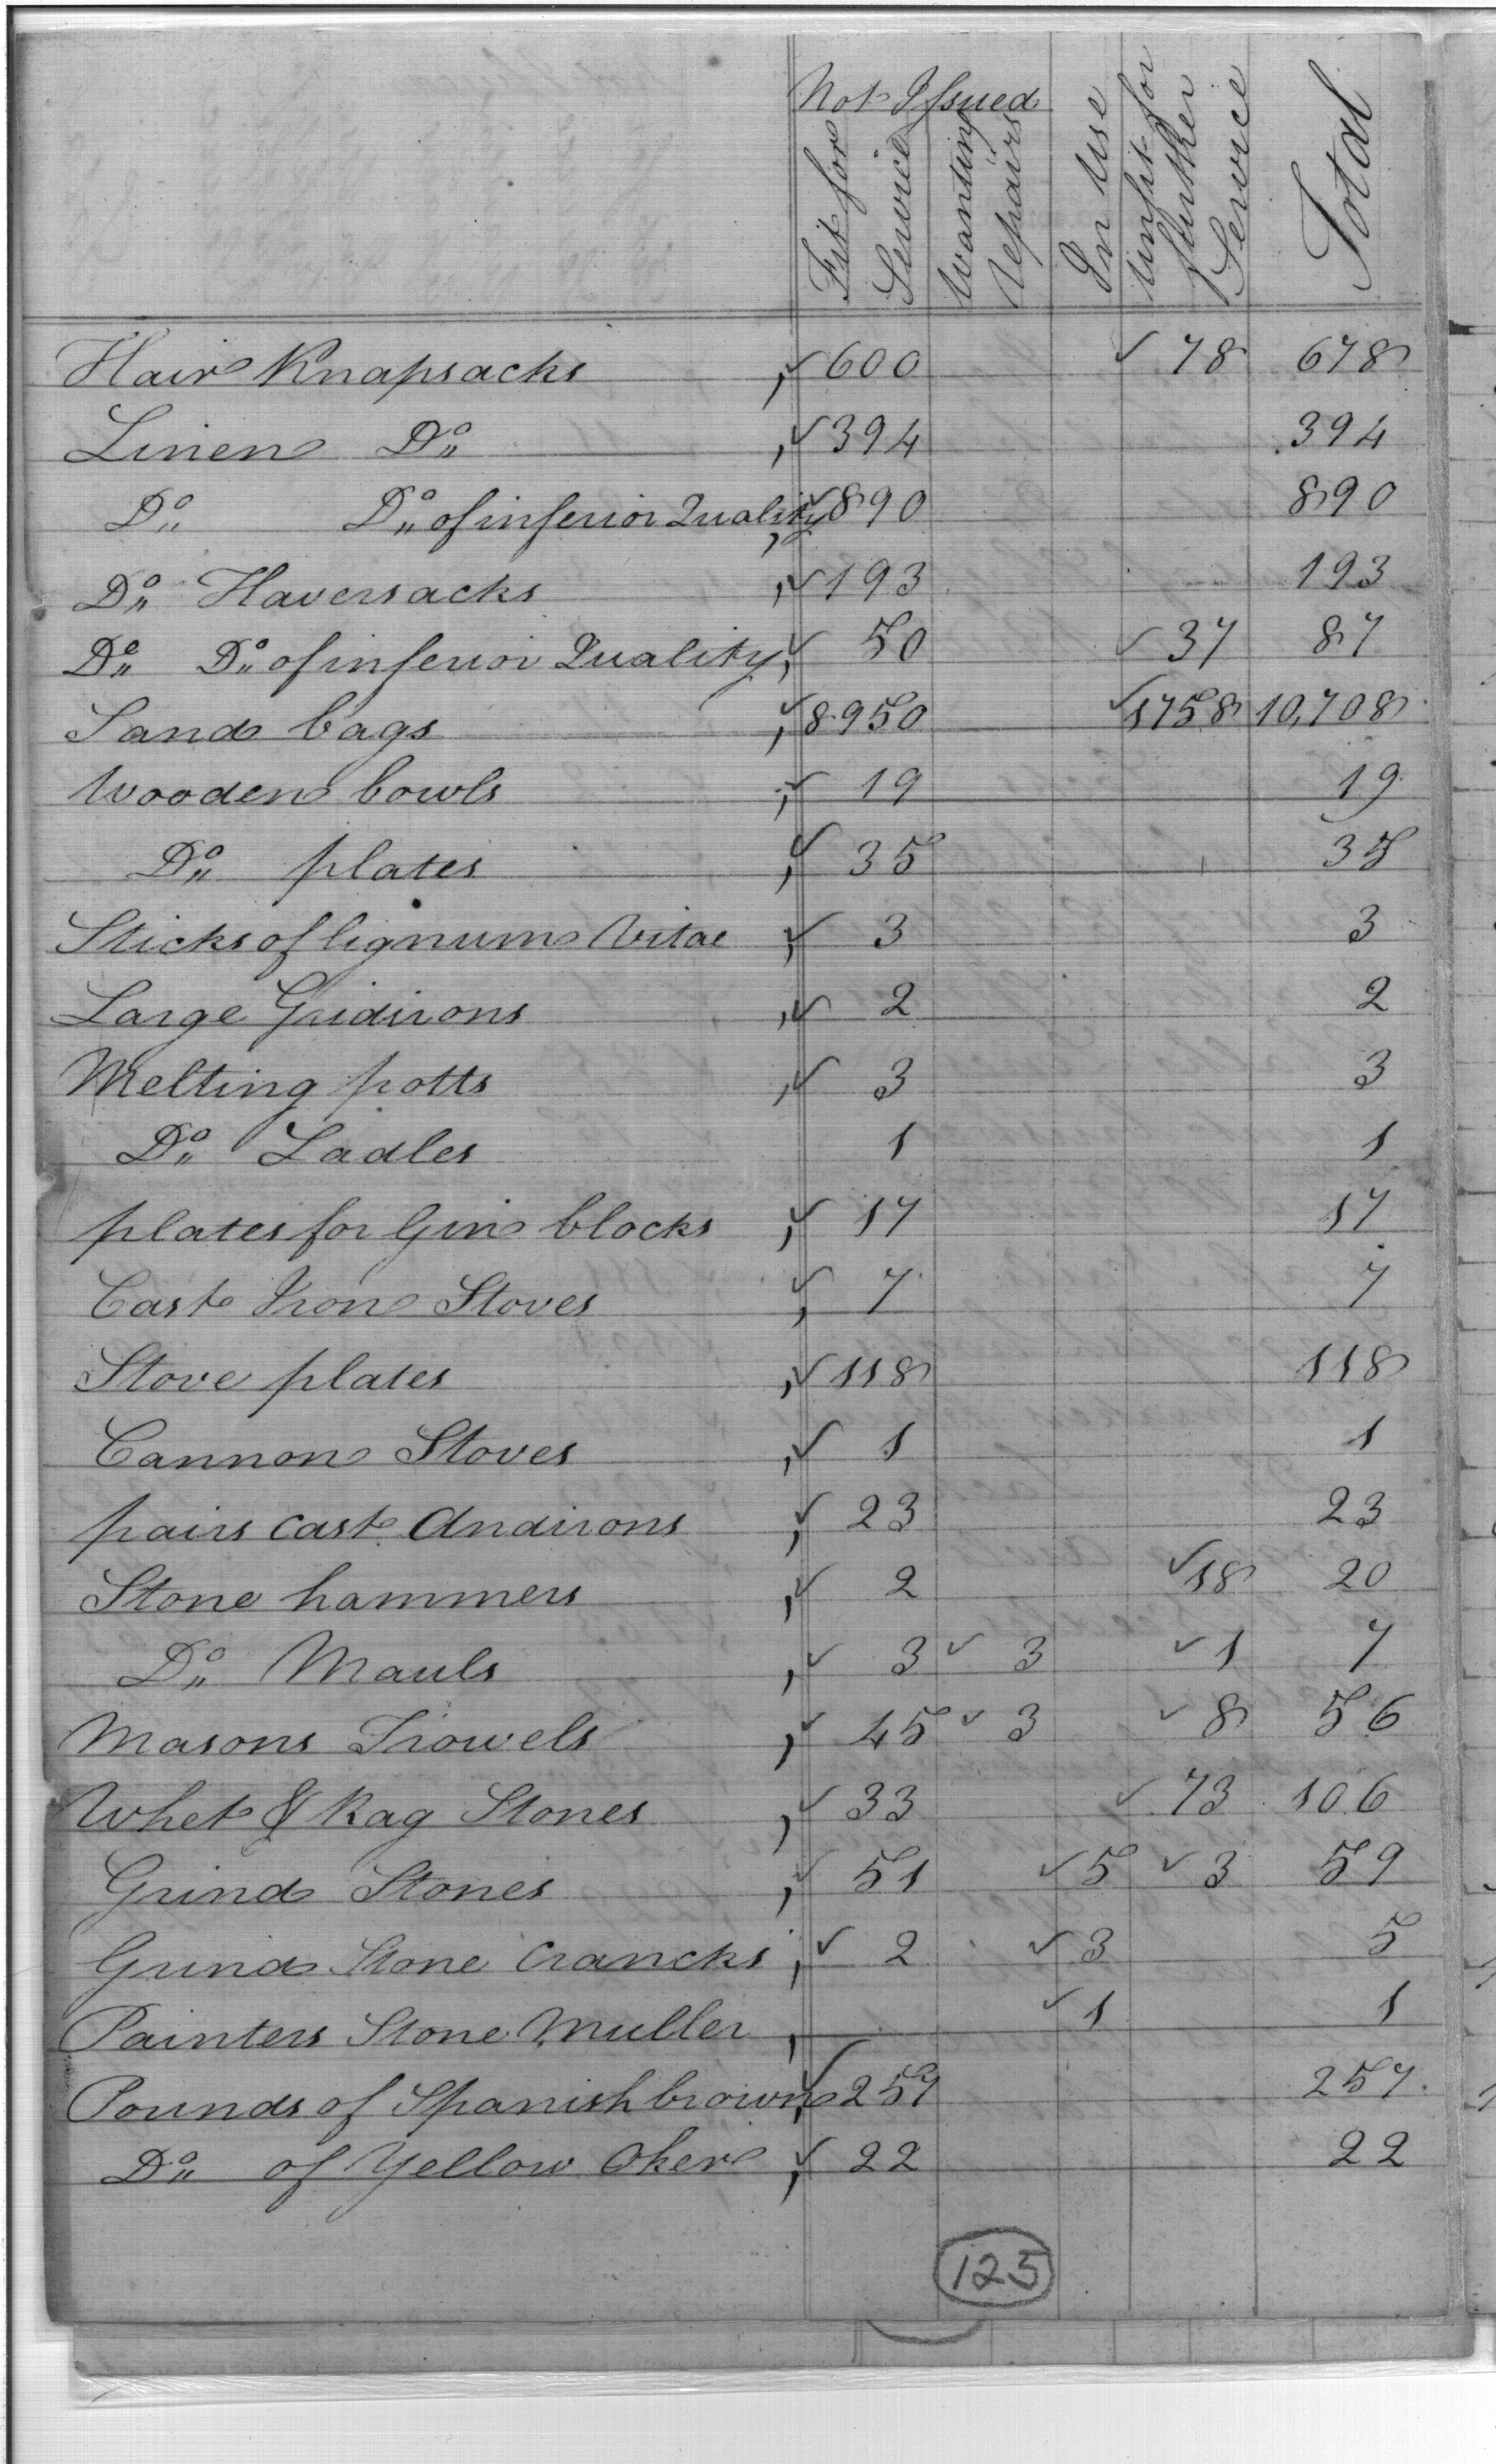 Not Issued
Fit for Service
Wanting repairs
In Use
Unfit for further Service
Total
Hair Knapsacks, ✓600 ✓78 678
Linen Do, ✓394 394
Do Do of inferior Quality, ✓890 890
Do Haversacks, ✓193 193
Do Do of inferior Quality, ✓50 ✓37 87
Sand bags, ✓8950 ✓1758 10,708
Wooden bowls, ✓19 19
Do plates, ✓35 35
Sticks of lignum Vitae, ✓3 3
Large Gridirons, ✓2 2
Melting potts, ✓3 3
Do Ladles 1 1
plates for Gin blocks, ✓17 17
Cast Iron Stoves, ✓7 7
Stove plates, ✓118 118
Cannon Stoves, ✓1 1
pairs Cast Andirons, ✓23 23
Stone hammers, ✓2 ✓18 20
Do Mauls, ✓3 ✓3 ✓1 7
Masons Trowels, ✓45 ✓3 ✓8 56
Whet & Rag Stones, ✓33 ✓73 106
Grind Stones, ✓51 ✓5 ✓3 59
Grind Stone Crancks, ✓2 ✓3 5
Painters Stone Muller, ✓1 1
Pounds of Spanish brown, ✓257 257
Do of Yellow Oker, ✓22 22
125